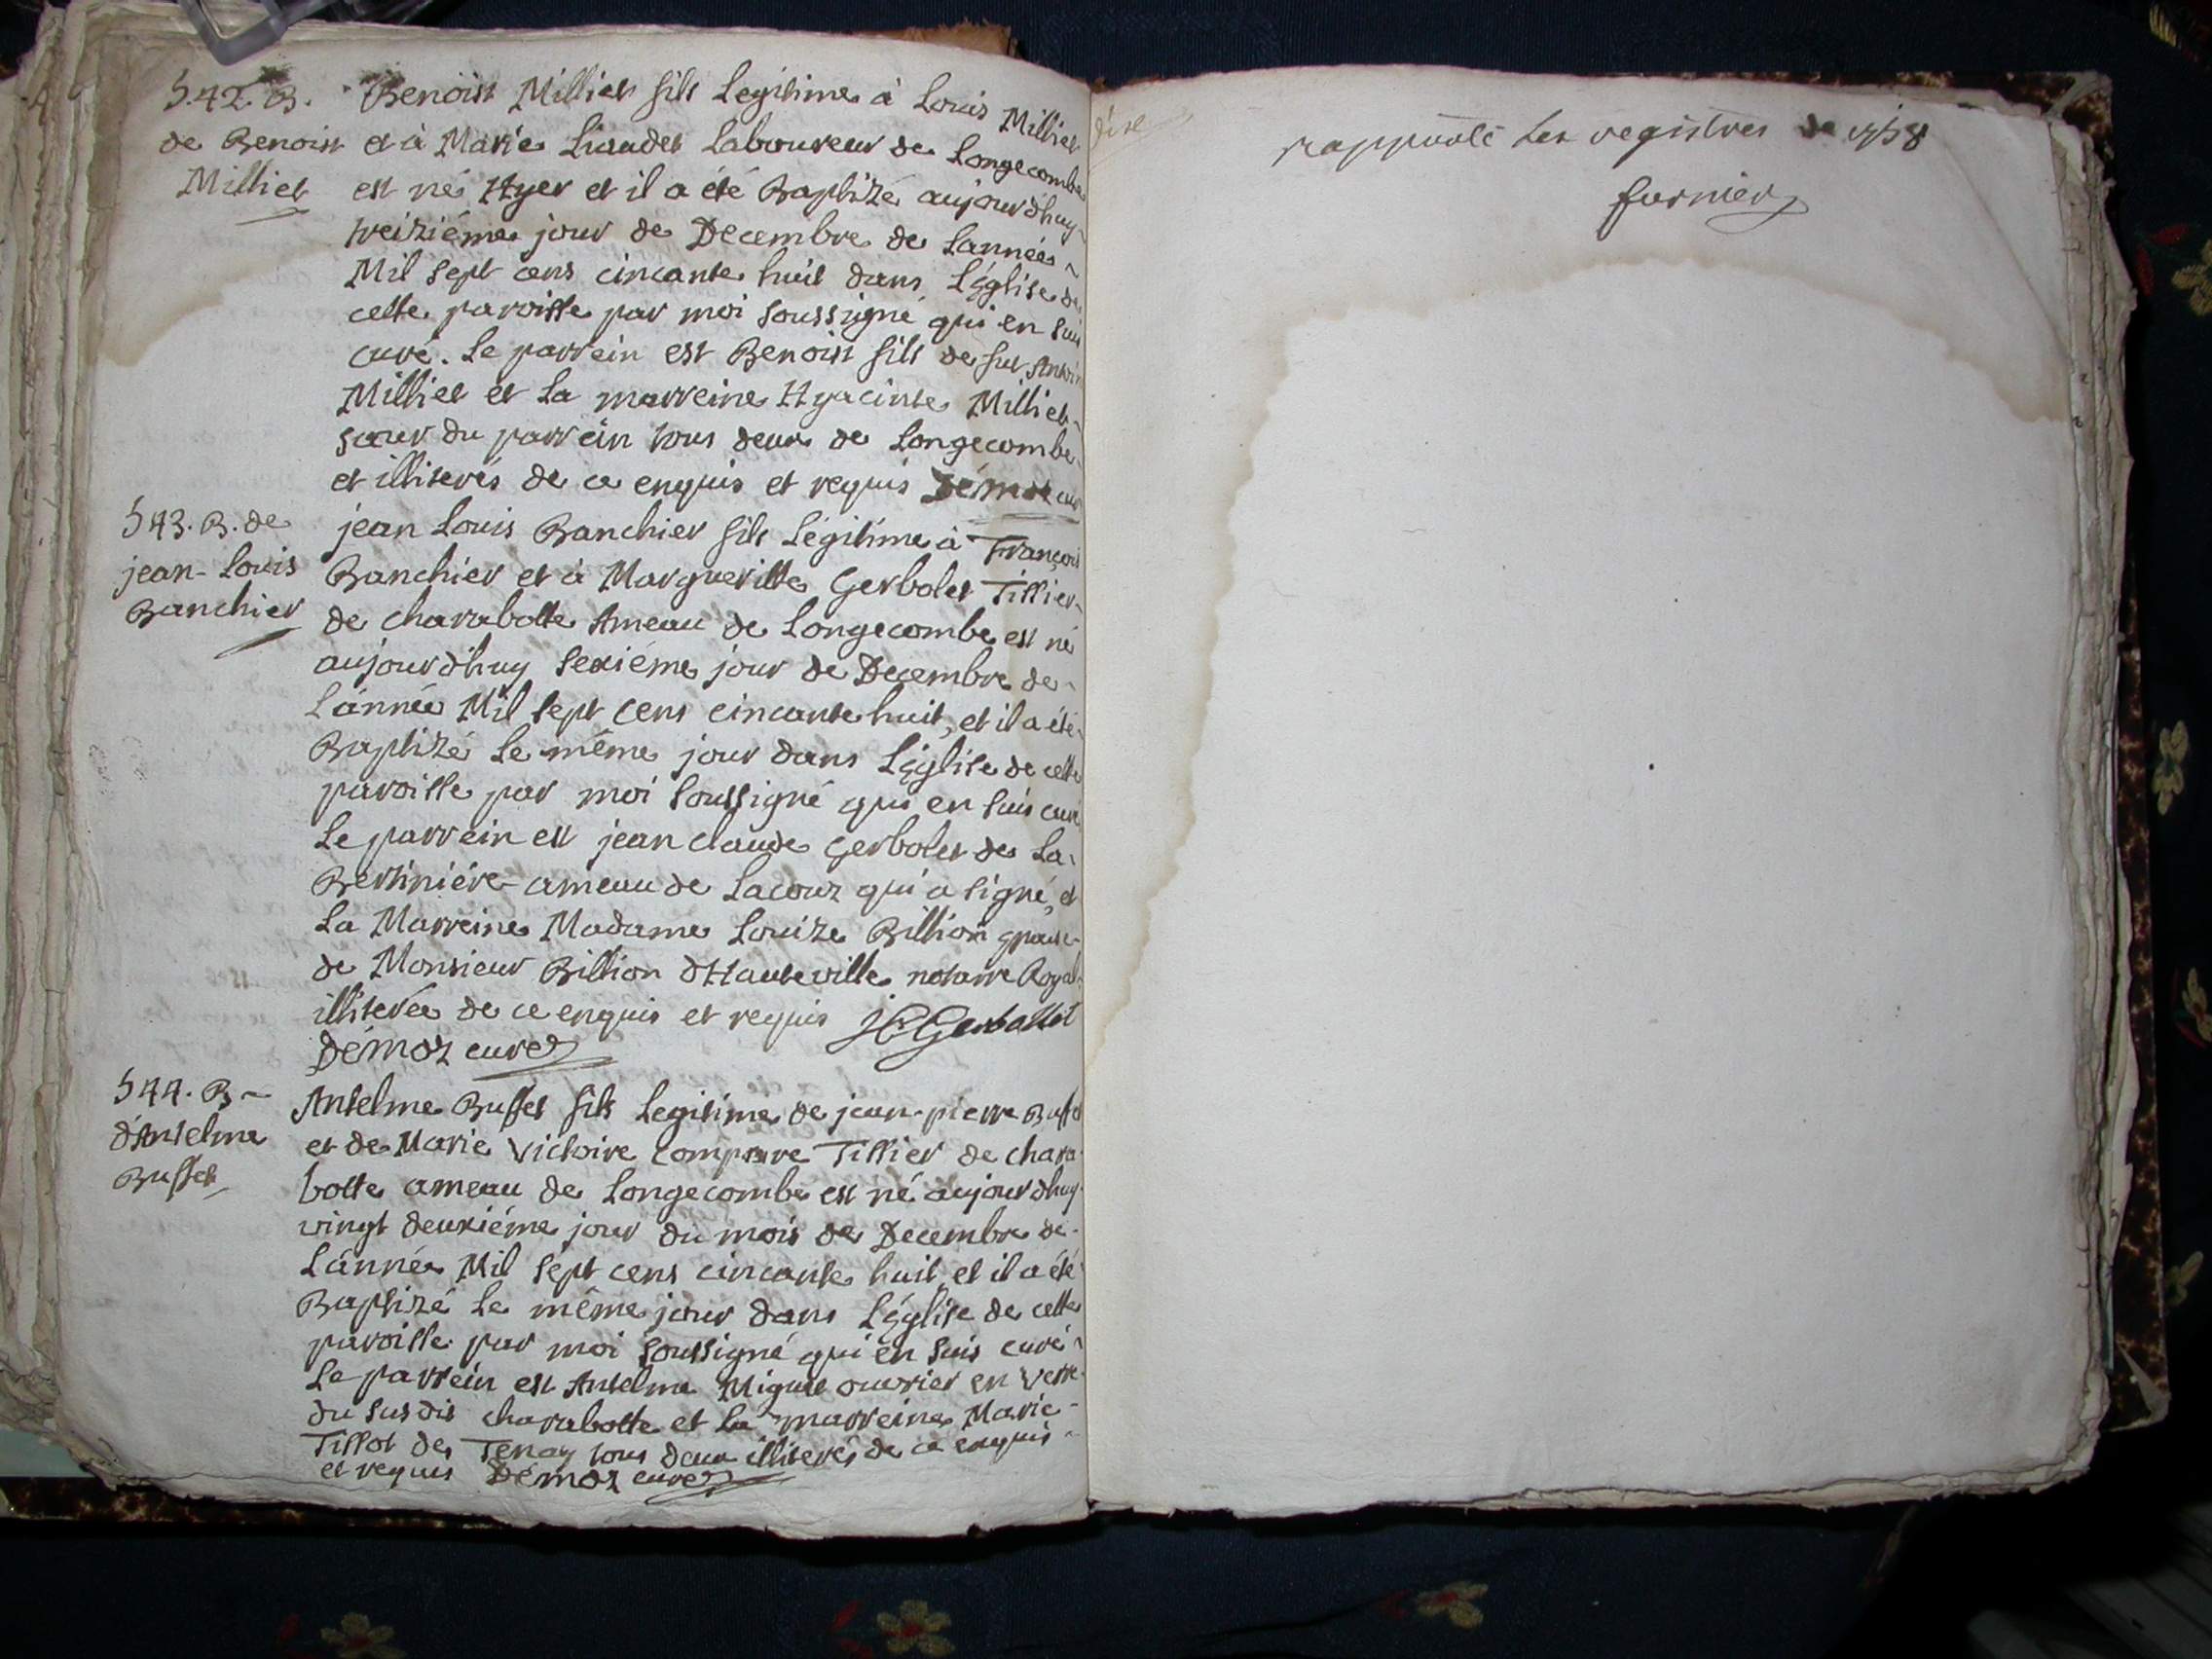 542. B.
de Benoist
Milliet
Benoist Milliet fils Legitime à Louis Milliet
et à Marie Liaudet Laboureur de Longecombe
est né Hyer et il a été Baptizé aujourdhuy
treiziéme jour de Decembre de Lannée
Mil sept cens cincante huit dans L'Église de
cette paroisse par moi soussigné qui en suis
curé. Le parrein est Benoist fils de feu
Milliet et La marreine Hyacinte Milliet
sœur du parrein tous deux de Longecombe
et illiterés de ce enquis et requis Démoz curé
543. B. de
jean-Louis
Banchier
jean Louis Banchier fils Légitime à François
Banchier et à Margueritte Gerbolet Tissier
de charabotte Ameau de Longecombe est né
aujourdhuy sexiéme jour de Decembre de
L'année Mil sept cens cincante huit, et il a été
Baptizé Le même jour dans L'Église de cette
paroisse par moi soussigné qui en suis curé
Le parrein est jean claude Gerbolet de La
Bertiniére ameau de Lacoux qui a signé, et
La Marreine Madame Louize Billion epouse
de Monsieur Billion d'Hauteville notaire Royal
illiterée de ce enquis et requis JCGerbollet
Démoz curé
544. B
d'Antelme
Buffet
Antelme Buffet fils Legitime de jean-pierre Buffet
et de Marie Victoire Tissier de chara
botte ameau de Longecombe est né aujourdhuy
vingt deuxiéme jour du mois de Decembre de
L'année Mil sept cens cincante huit, et il a été
Baptizé Le même jour dans L'Église de cette
paroisse par moi soussigné qui en suis curé
Le parrein est Antelme Miguet ouvrier en verre
du susdit charabotte et La marreine Marie
Tissot de Tenay tous deux illiterés de ce enquis
et requis Démoz curé
rapporté les registres de 1758
furnier